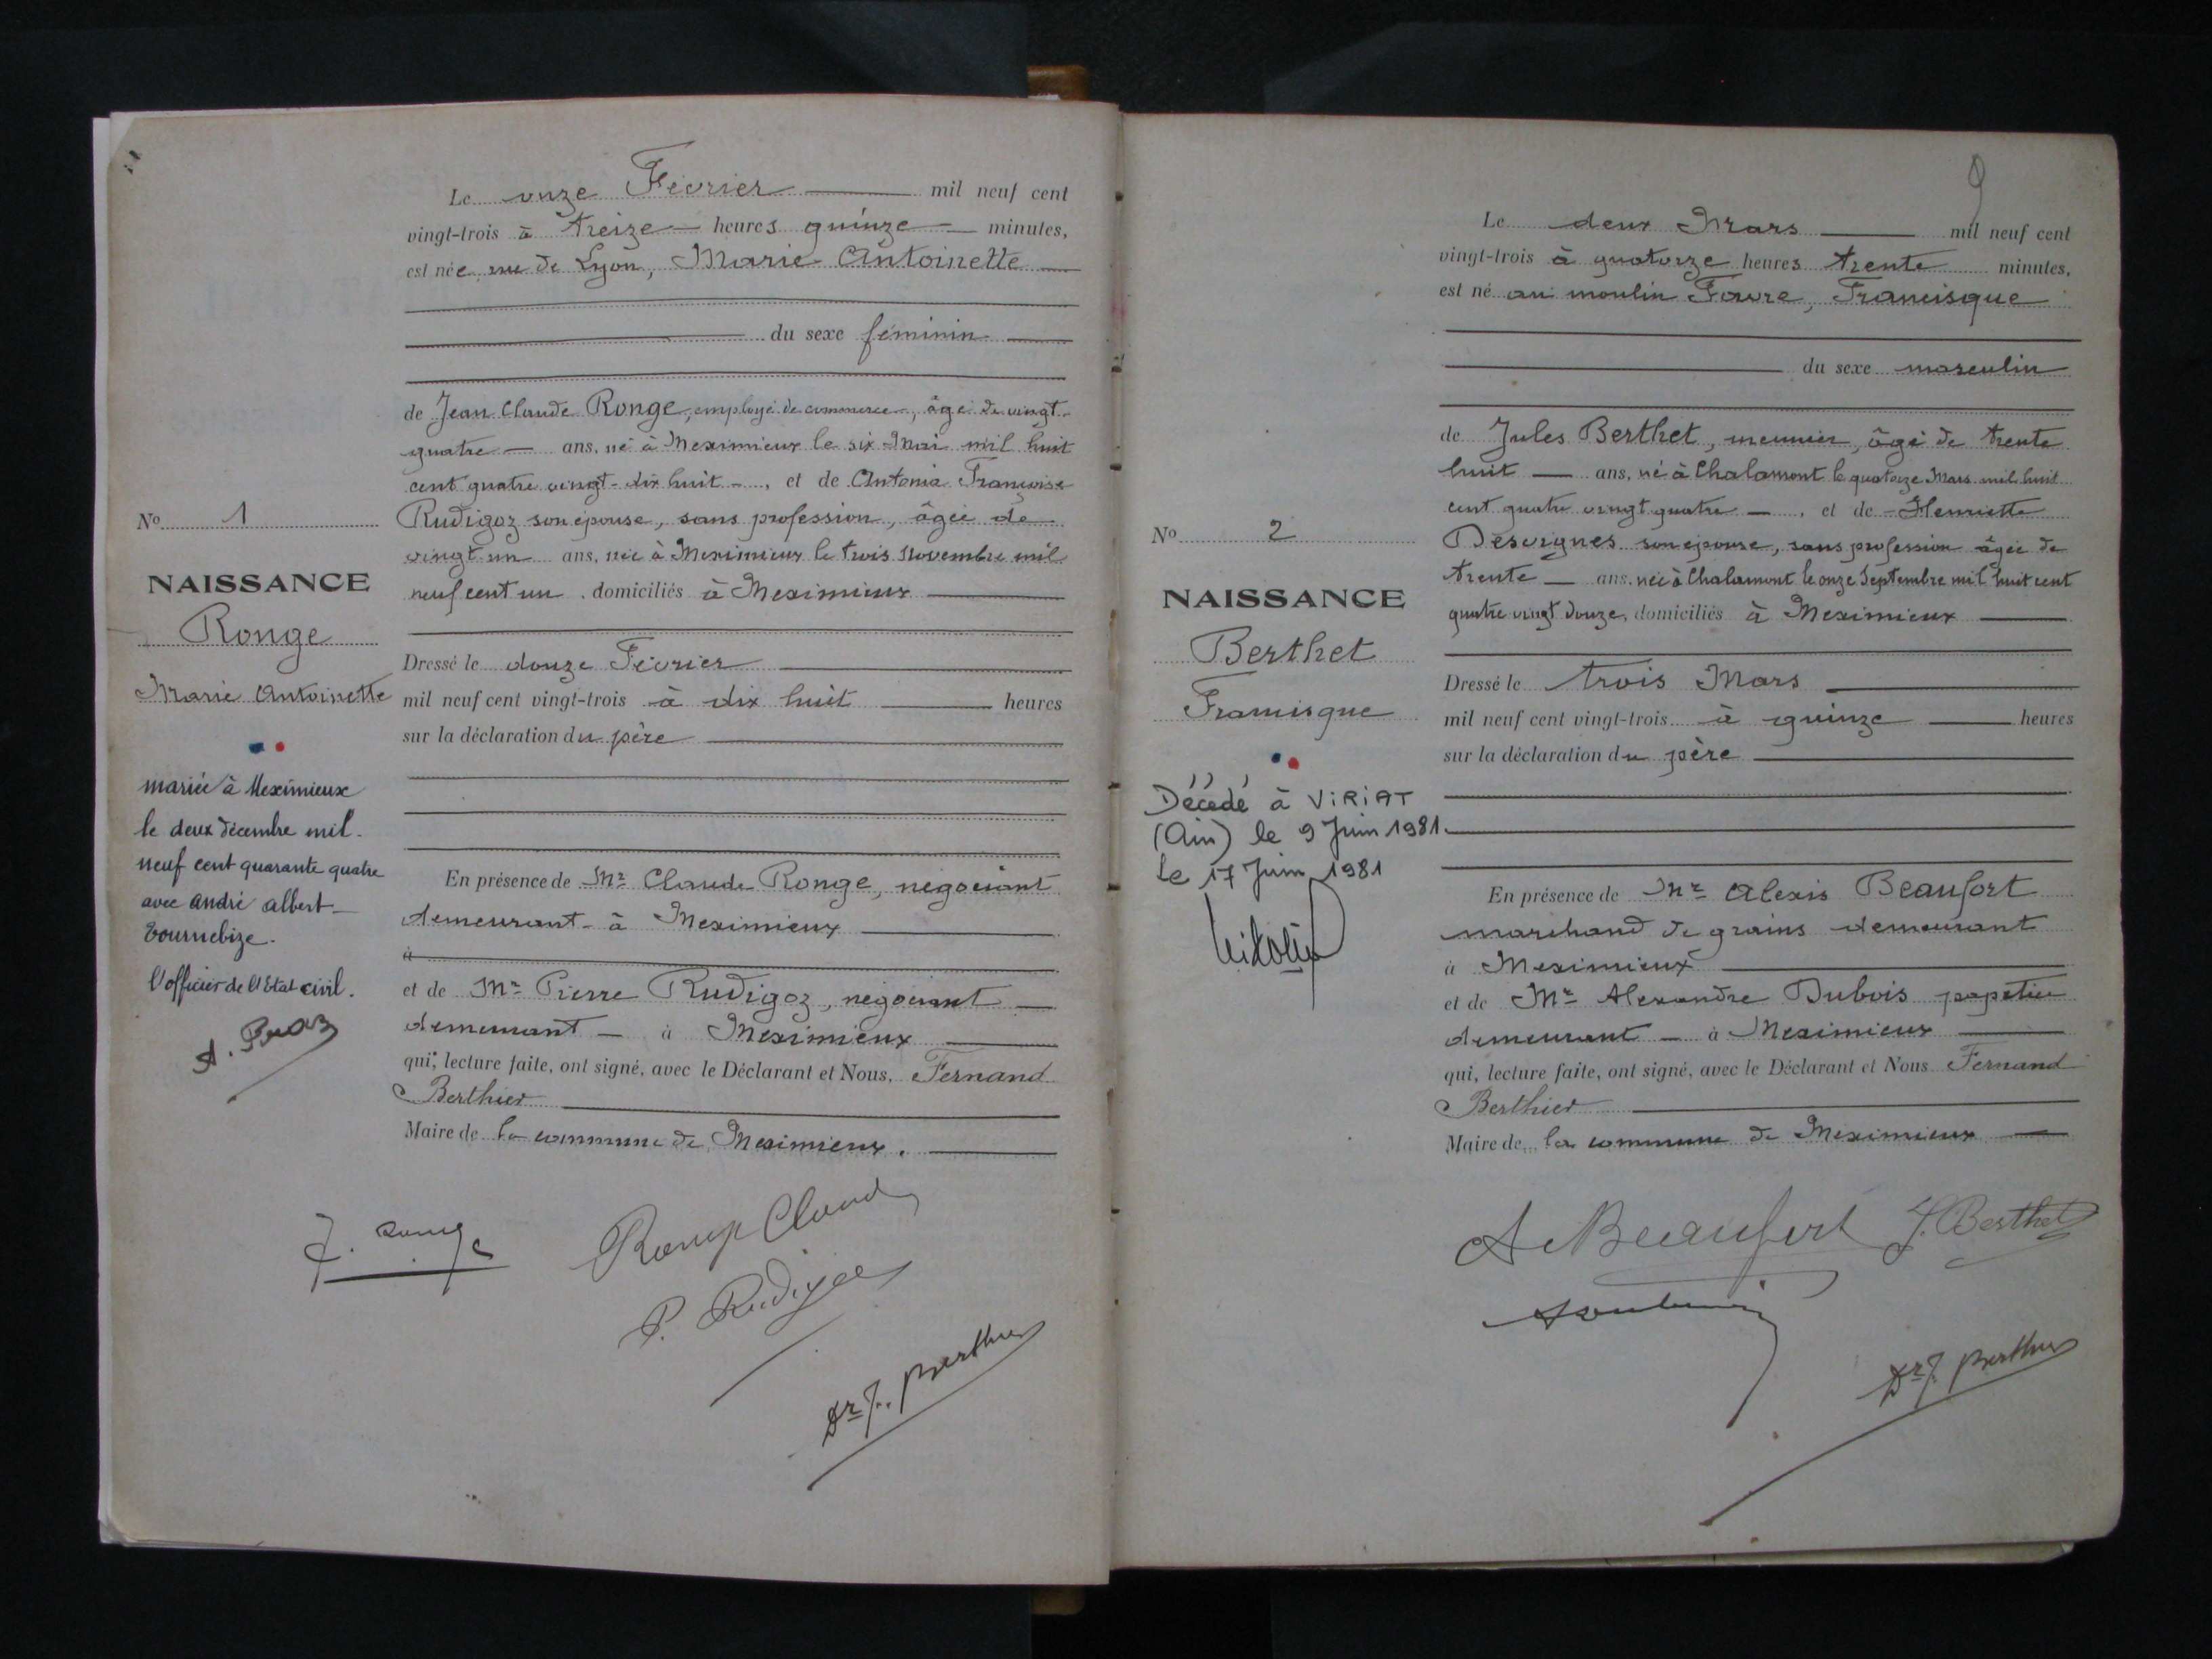 Le onze Février mil neuf cent
vingt-trois à treize heures quinze minutes,
est née rue de Lyon, Marie Antoinette
du sexe féminin
de Jean Claude Ronge, employé de commerce, âgé de vingt
quatre ans, né à Meximieux le six Mai mil huit
cent quatre vingt-dix huit, et de Antonia Françoise
Rudigoz son épouse, sans profession, âgée de
vingt un ans, née à Meximieux le trois Novembre mil
neuf cent un, domiciliés à Meximieux
Dressé le douze Février
mil neuf cent vingt-trois à dix huit heures
sur la déclaration du père
En présence de Mr Claude Ronge, négociant
demeurant à Meximieux
à
et de Mr Pierre Rudigoz, négociant
demeurant à Meximieux
qui, lecture faite, ont signé, avec le Déclarant et Nous, Fernand
Berthier
Maire de la commune de Meximieux.
No 1
NAISSANCE
Ronge
Marie Antoinette
mariée à Meximieux
le deux décembre mil
neuf cent quarante quatre
avec André Albert
Tournebize.
l'officier de l'Etat civil.
J. Ronge
Ronge Claude
P. Rudigoz
Dr F. Berthier
9
Le deux Mars mil neuf cent
vingt-trois à quatorze heures trente minutes,
est né au moulin Favre, Francisque
du sexe masculin
de Jules Berthet, meunier, âgé de trente
huit ans, né à Chalamont le quatorze Mars mil huit
cent quatre vingt quatre, et de Henriette
Desvignes son épouse, sans profession âgée de
trente ans, née à Chalamont le onze Septembre mil huit cent
quatre vingt douze, domiciliés à Meximieux
Dressé le trois Mars
mil neuf cent vingt-trois à quinze heures
sur la déclaration du père
En présence de Mr Alexis Beaufort
marchand de grains demeurant
à Meximieux
et de Mr Alexandre Dubois papetier
demeurant à Meximieux
qui, lecture faite, ont signé, avec le Déclarant et Nous Fernand
Berthier
Maire de la commune de Meximieux
No 2
NAISSANCE
Berthet
Francisque
Décédé à VIRIAT
(Ain) le 9 Juin 1981
Le 17 Juin 1981
A Beaufort
J. Berthet
Dr F. Berthier